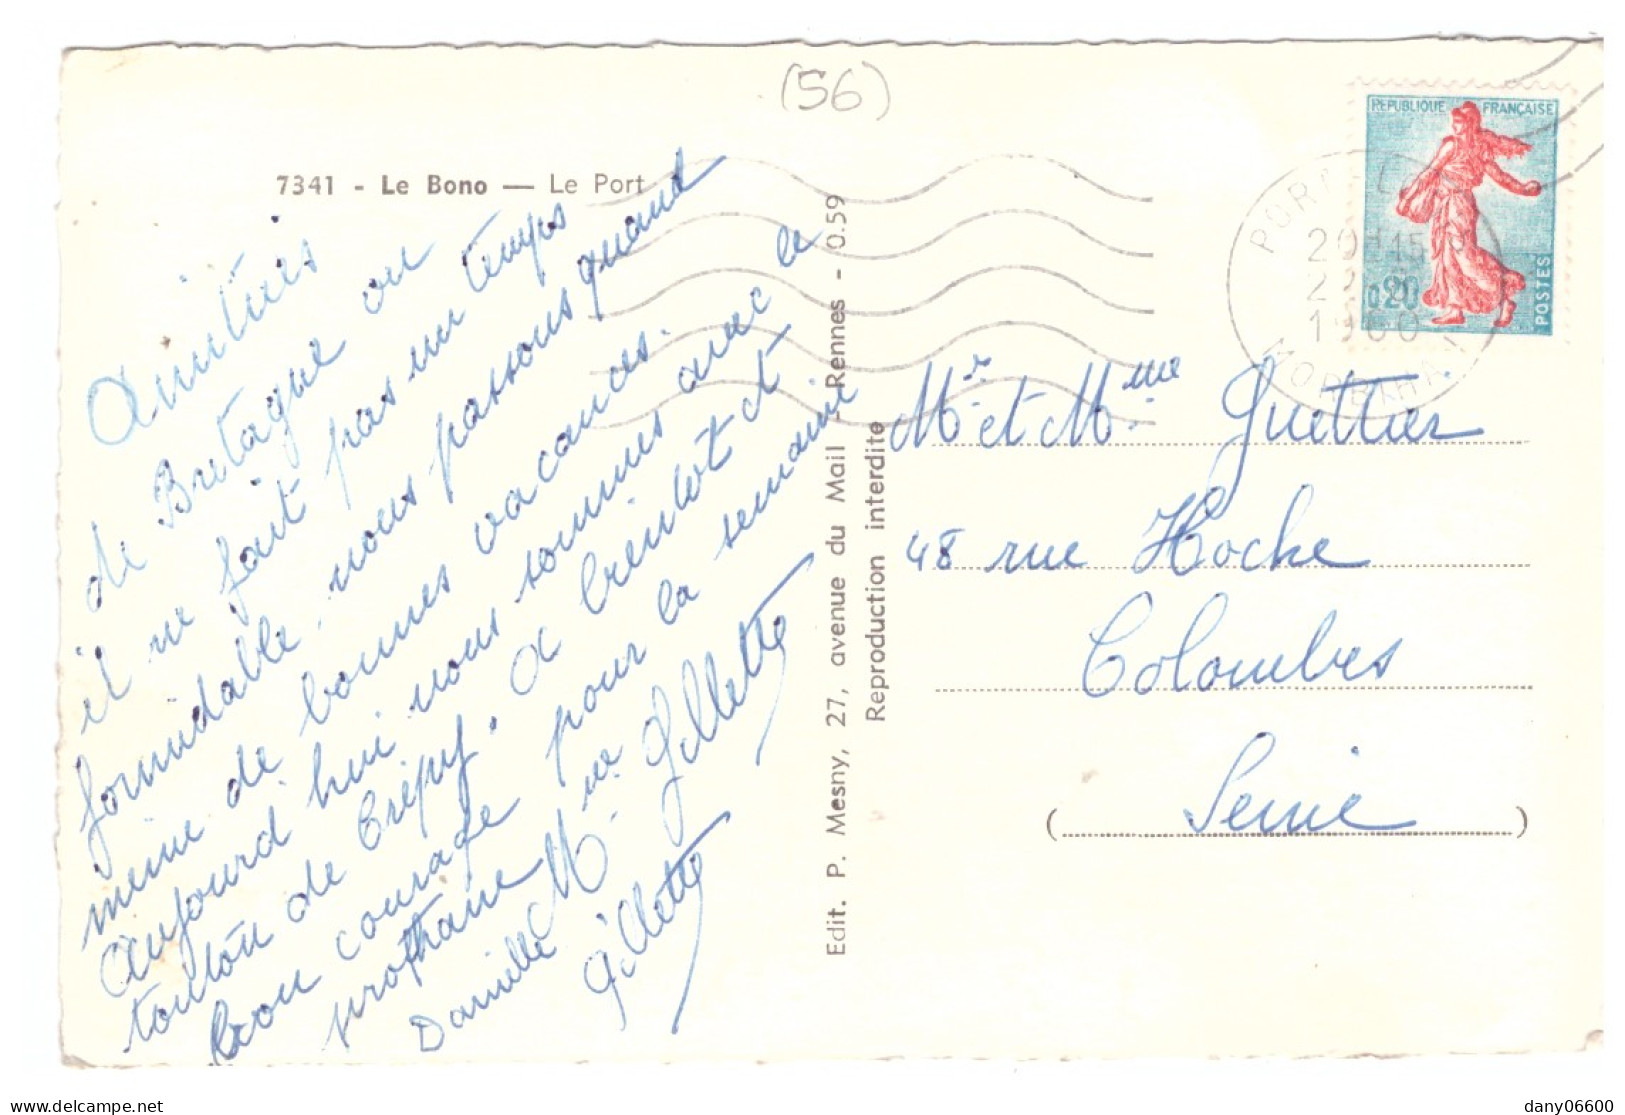 (56)
7341 - Le Bono — Le Port
Amitiés
de Bretagne ou
il ne fait pas un temps
formidable, nous passons quand
meme de bonnes vacances.
aujourd hui nous sommes avec le
tonton de Crépy. a bientôt et
bon courage pour la semaine
prochaine
Danielle Gillette
Gillette
Edit. P. Mesny, 27, avenue du Mail - Rennes - 0.59
Reproduction interdite
REPUBLIQUE FRANÇAISE
0,20
POSTES
20H15
1960
MORBIHAN
Mr et Mme Guettier
48 rue Hoche
Colombes
(Seine)
delcampe.net
dany06600